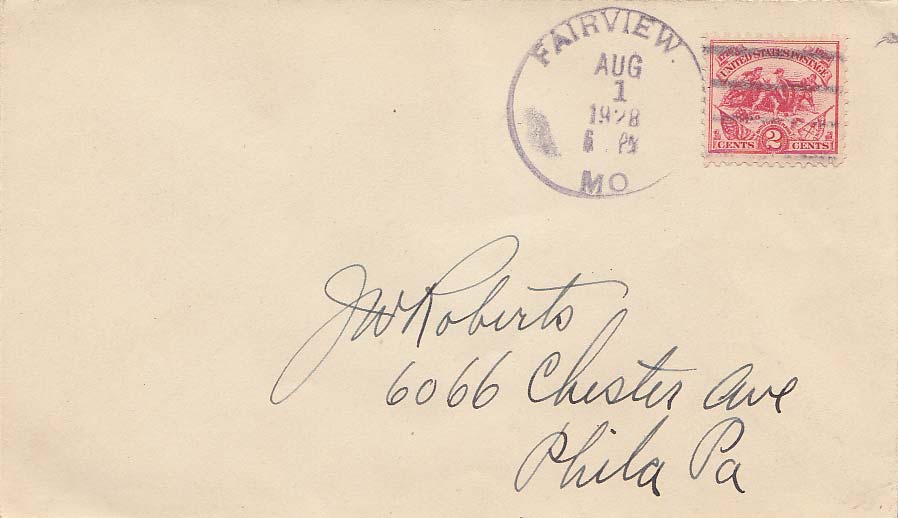 FAIRVIEW
AUG
1
1928
MO
UNITED STATES POSTAGE
2
CENTS CENTS
J W Roberts
6066 Chester Ave
Phila Pa